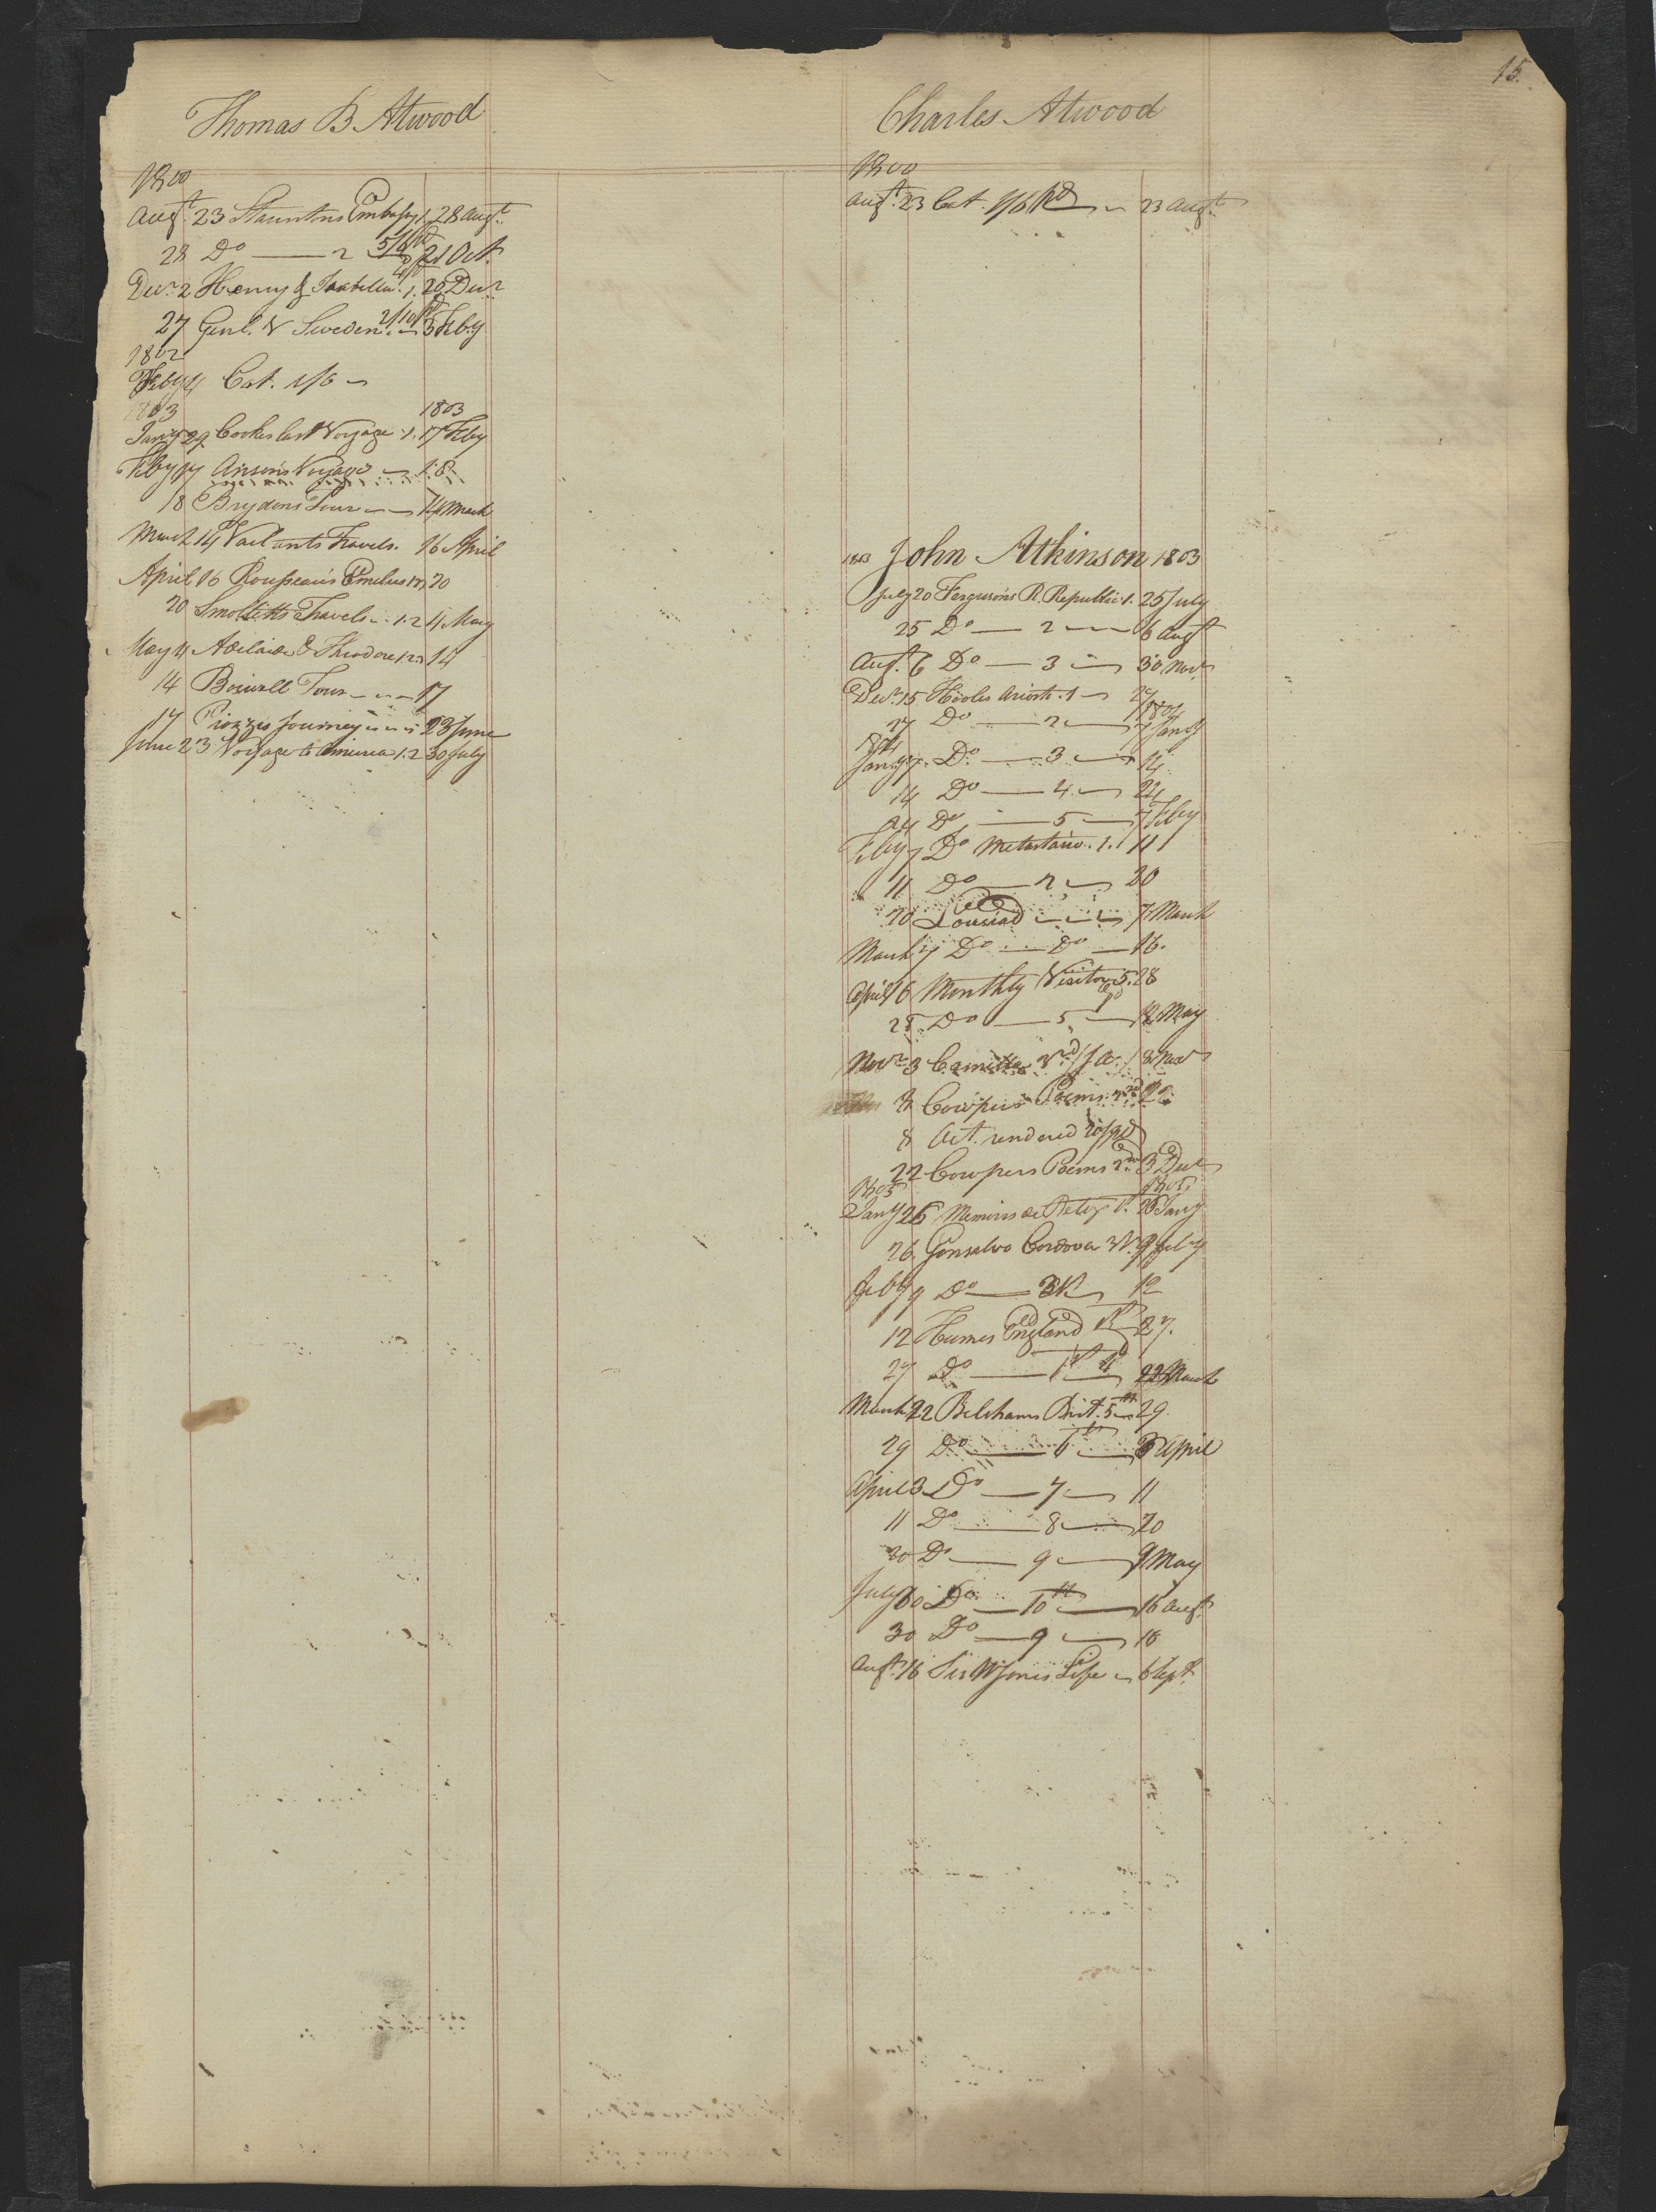 15.
Thomas B. Atwood
1800
Augt. 23 Stauntons Embassy 1. 28 Augt.
28 Do — 2 5/6 Pd 21 Oct.
Decr. 2 Henry & Isabella. 1. 20 Decr
27 Genl. V Sweden. 2/10 Pd 5 Feby
1802
Feby 4 Cat. 1/6
1803 1803
Jany 29 Cookes last Voyage 1. 17 Feby
Feby 17 Ansons Voyage 18
18 Brydons Tour 14 March
March 14 Vailants Travels. 16 April
April 16 Rousseau's Emelius 20
20 Smolletts Travels 1.2 4 May
May 4 Adelaide & Theodore 14
14 Boswell Tour 17
17 Piozzis Journey 23 June
June 23 Voyage to America 1.2 30 July
Charles Atwood
1800
Augt. 23 Cat. 1/6 Pd 23 Augt.
1803 John Atkinson 1803
July 20 Ferguson's R. Republic 1. 25 July
25 Do — 2 — 6 Augt
Augt. 6 Do — 3 — 30 Novr
Decr. 15 Hooles Ariosto. 1 27
27 Do — 2 — 1804 7 Jany
1804
Jany 7. Do — 3 — 14
14 Do — 4 — 24
24 Do — 5 — 7 Feby
Feby 7 Do Metastasio. 1. 11
11 Do — 2 — 20
20 Lousiad 7 March
March 7 Do — Do — 16.
April 16 Monthly Visitor 5. 28
28 Do — 5 — 12 May
Novr. 3 Camilla 8 Novr
8 Cowpers Poems 22
8 Act. rendered
22 Cowpers Poems 2nd 3 Decr
1805 1805
Jany 26 Memoirs de Retz 26 Jany
26 Gonsalvo Cordova 9 Feby
Feby 9 Do — 12
12 Humes England 27.
27 Do — 22 March
March 22 Belshams Brit. 5th 29
29 Do — 6th — 3 April
April 3 Do — 7 — 11
11 Do — 8 — 20
20 Do — 9 — 9 May
July 30 Do — 10th — 16 Augt.
30 Do — 9 — 16
Augt. 16 Sir W Jones Life 6 Sept.